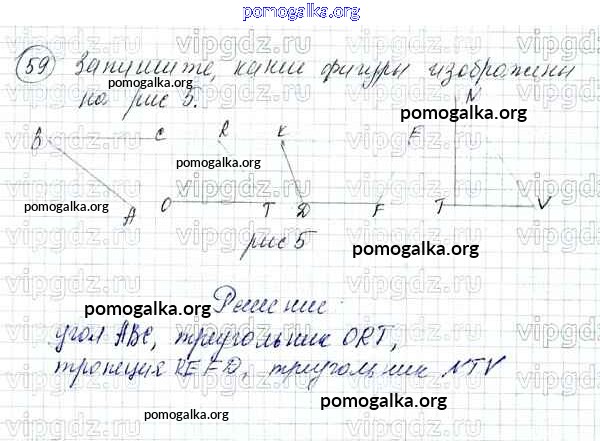 pomogalka.org
59 Запишите, какие фигуры изображены
pomogalka.org
на рис 5.
pomogalka.org
N
B C R K E
pomogalka.org
pomogalka.org
A O T D F T V
рис 5
pomogalka.org
Решение:
pomogalka.org
угол ABC, треугольник ORT,
pomogalka.org
трапеция KEFD, треугольник NTV
pomogalka.org
pomogalka.org